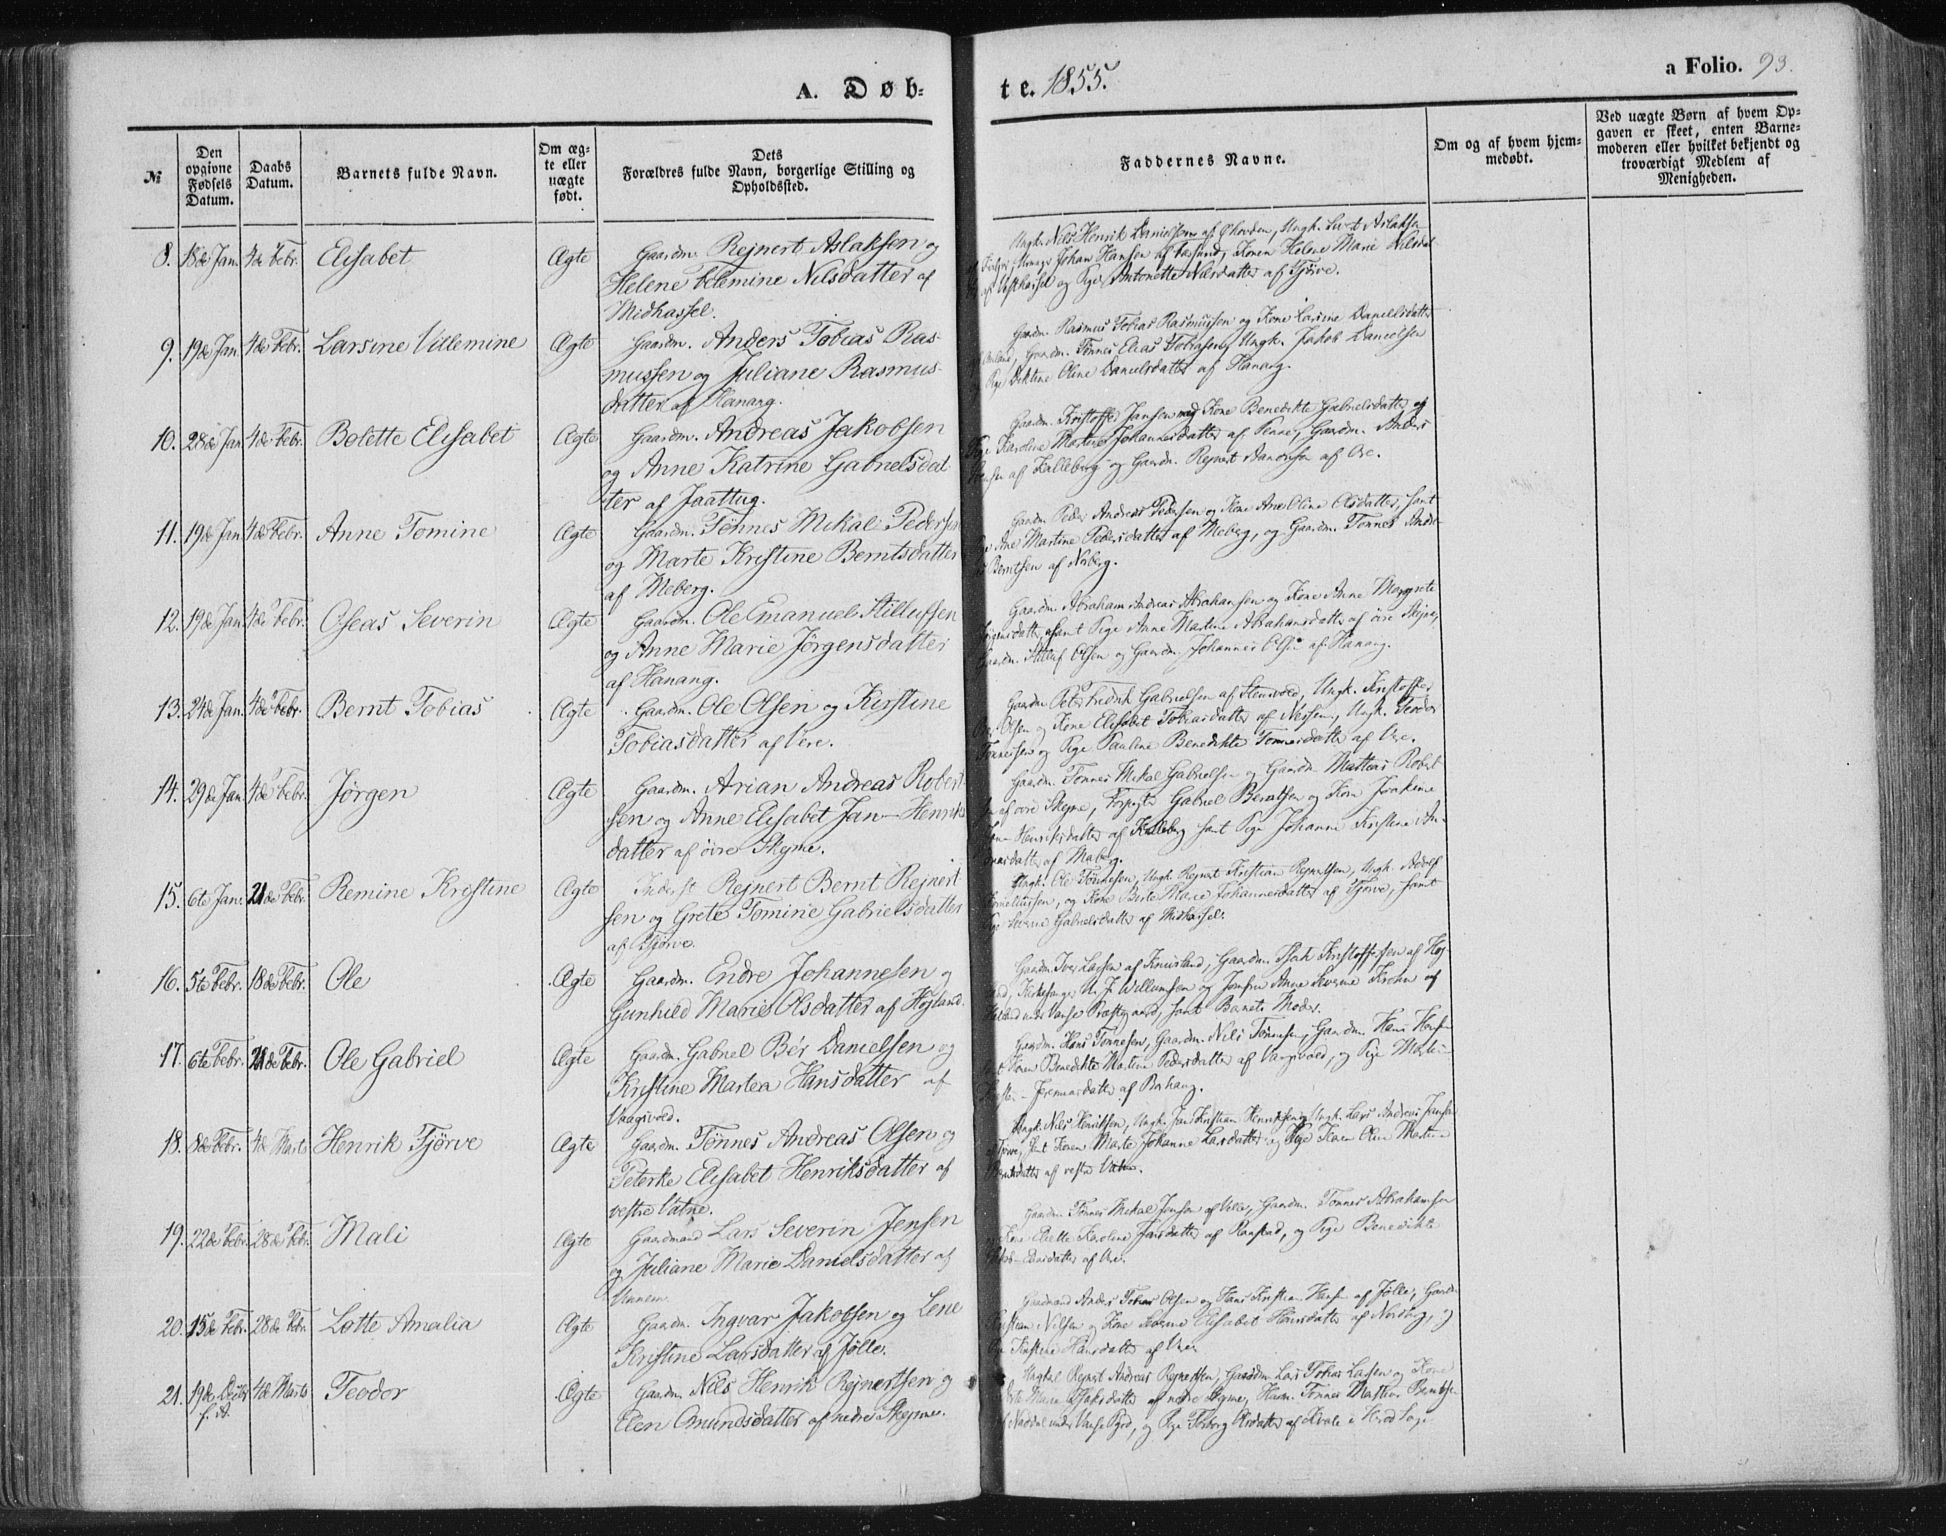 A. Døb-
te. 1855.
a Folio. 93.
№
Den opgivne Fødsels Datum.
Daabs Datum.
Barnets fulde Navn.
Om ægte eller uægte født.
Dets
Forældres fulde Navn, borgerlige Stilling og
Opholdssted.
Faddernes Navne.
Om og af hvem hjem-
medøbt.
Ved uægte Børn af hvem Op-
gaven er skeet, enten Barne-
moderen eller hvilket bekjendt og
troværdigt Medlem af
Menigheden.
8. 18de Jan. 4de Febr. Elisabet Ægte Gaardm. Rejnert Aslaksen og
Helene Velemine Nilsdatter af
Midhassel.
Ungk. Nils Henrik Danielsen af
Johan Hansen af Konen Helene Marie
af Vesthassel og Pige Antonette Nilsdatter af Tjørve.
9. 19de Jan. 4de Febr. Larsine Villemine Ægte Gaardm. Anders Tobias Ras-
mussen og Juliane Rasmus-
datter af Hanang.
Gaardm. Rasmus Tobias Rasmussen og Kone Larsine Danielsdatter
Gaardm. Tønnes Elias Tobiasen, Ungk. Jakob Danielsen
Pige Oline Danielsdatter af Hanang.
10. 28de Jan. 4de Febr. Bolette Elisabet Ægte Gaardm. Andreas Jakobsen
og Anne Katrine Gabrielsdat-
ter af Jaattug.
Gaardm. Kristoffer Jansen og Kone Benedikte Gabrielsdatter og
Pige Karoline Martine Johannesdatter af Penne, Gaardm. Anders
af Kalleberg og Gaardm. Rejnert af Ore.
11. 19de Jan. 4de Febr. Anne Tomine Ægte Gaardm. Tønnes Mikal Pedersen
og Marte Kristine Berntsdatter
af Meberg.
Gaardm. Peder Andreas Pedersen og Kone Ane Oline Olsdatter, samt
Pige Ane Martine Pedersdatter af Meberg, og Gaardm. Tønnes Andr-
Berntsen af Norberg.
12. 19de Jan. 4de Febr. Oseas Severin Ægte Gaardm. Ole Emanuel Stillufsen
og Anne Marie Jørgensdatter
af Hanang.
Gaardm. Abraham Andreas Abrahamsen og Kone Anne Margrete
Jørgensdatter, samt Pige Anne Martine Abrahamsdatter af øvre Skejne,
Gaardm. Stilluf Olsen og Gaardm. Johannes Olsen af Hanang.
13. 24de Jan. 4de Febr. Bernt Tobias Ægte Gaardm. Ole Olsen og Kirstine
Tobiasdatter af Vere.
Gaardm. Peter Fredrik Gabrielsen af Stensvold, Ungk. Kristoffer
Olsen og Kone Elisabet Tobiasdatter af Nessem, Ungk. Teodor
Tønnesen og Pige Pauline Benedikte Tønnesdatter af Ore.
14. 29de Jan. 4de Febr. Jørgen Ægte Gaardm. Arian Andreas Robert-
sen og Anne Elisabet Jan-Henriks-
datter af øvre Skejne.
Gaardm. Tønnes Mikal Gabrielsen og Gaardm. Mathias Robert-
sen af øvre Skejne, Forpagter Gabriel Berntsen og Kone Joakime
Jan-Henriksdatter af Kalleberg samt Pige Johanne Kristine An-
dreasdatter af Meberg.
15. 6te Jan. 21de Febr. Remine Kristine Ægte Inderst Rejnert Bernt Rejnert-
sen og Grete Tomine Gabrielsdatter
af Tjørve.
Ungk. Ole Tønnesen, Ungk. Rejnert Kristian Rejnertsen, Ungk. Adolf
Korneliussen, og Kone Berte Marie Johannesdatter af Tjørve, samt
Pige Severine Gabrielsdatter af Midhassel.
16. 5te Febr. 18de Febr. Ole Ægte Gaardm. Endre Johannesen og
Gunhild Marie Olsdatter af Højland.
Gaardm. Iver Larsen af Gaardm. Isak Kristoffersen af Høj-
land, Kirkesanger N. J. Willumsen og Jomfru Anne Severine Krohn af
under Vanse Præstegaard, samt Barnets Moder.
17. 6te Febr. 21de Febr. Ole Gabriel Ægte Gaardm. Gabriel Bér Danielsen og
Kristine Martea Hansdatter af
Vaagsvold.
Gaardm. Hans Tønnesen, Gaardm. Nils Tønnesen, Gaardm. Hans Han-
Konen Benedikte Martine Pedersdatter af Vaagsvold, og Pige
Jeremiasdatter af Borhaug.
18. 8de Febr. 4de Marts Henrik Tjørve Ægte Gaardm. Tønnes Andreas Olsen og
Peterke Elisabet Henriksdatter af
vestre Vatne.
Ungk. Nils Henriksen, Ungk. Jan Kristian Henriksen, Ungk. Lars Andreas Jansen
af Tjørve, samt Konen Marte Johanne Larsdatter og Pige Karen Oline Martine
Berntsdatter af vestre Vatne.
19. 22de Febr. 28de Febr. Mali Ægte Gaardmand Lars Severin Jensen
og Juliane Marie Danielsdatter af
Unnem.
Gaardm. Tønnes Mikal Jensen af Gaardm. Tønnes Abrahamsen
og Kone Karoline Jansdatter af Raastad, og Pige Benedikte
datter af Ore.
20. 15de Febr. 28de Febr. Lotte Amalia Ægte Gaardm. Ingvar Jakobsen og Lene
Kristine Larsdatter af Jølle.
Gaardmand Anders Tobias Olsen og Hans Kristian Hansen af Jølle, Gaardm.
Kristian Nilsen og Kone Severine Elisabet Hansdatter af Norberg, og
Pige Kirstine Hansdatter af Ore.
21. 19de Decbr. f. A. 4de Marts Teodor Ægte Gaardm. Nils Henrik Rejnertsen og
Elen Omundsdatter af nedre Skejne.
Ungkal Rejnert Andreas Rejnertsen, Gaardm. Lars Tobias Larsen og Kone
Marie Isaksdatter af nedre Skejne, Husm. Tønnes Mathias Berntsen
af under Vanse Pgrd, og Pige Torborg Olsdatter af Kvale i Herad Sogn